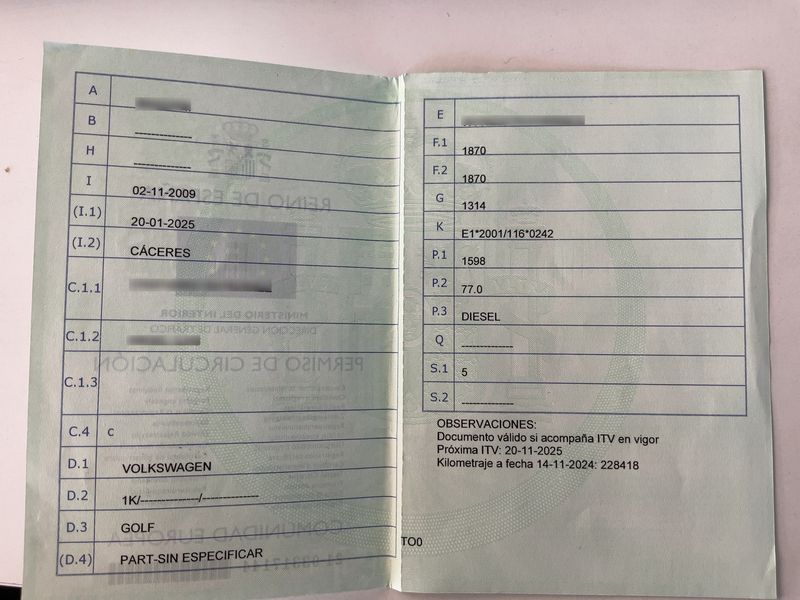 A
B -------------
H -------------
I 02-11-2009
(I.1) 20-01-2025
(I.2) CÁCERES
C.1.1
C.1.2
C.1.3
C.4 C
D.1 VOLKSWAGEN
D.2 1K/-------------/-------------
D.3 GOLF
(D.4) PART-SIN ESPECIFICAR
TO0
E
F.1 1870
F.2 1870
G 1314
K E1*2001/116*0242
P.1 1598
P.2 77.0
P.3 DIESEL
Q -------------
S.1 5
S.2 -------------
OBSERVACIONES:
Documento válido si acompaña ITV en vigor
Próxima ITV: 20-11-2025
Kilometraje a fecha 14-11-2024: 228418
REINO DE ESPAÑA
MINISTERIO DEL INTERIOR
DIRECCIÓN GENERAL DE TRÁFICO
PERMISO DE CIRCULACIÓN
COMUNIDAD EUROPEA